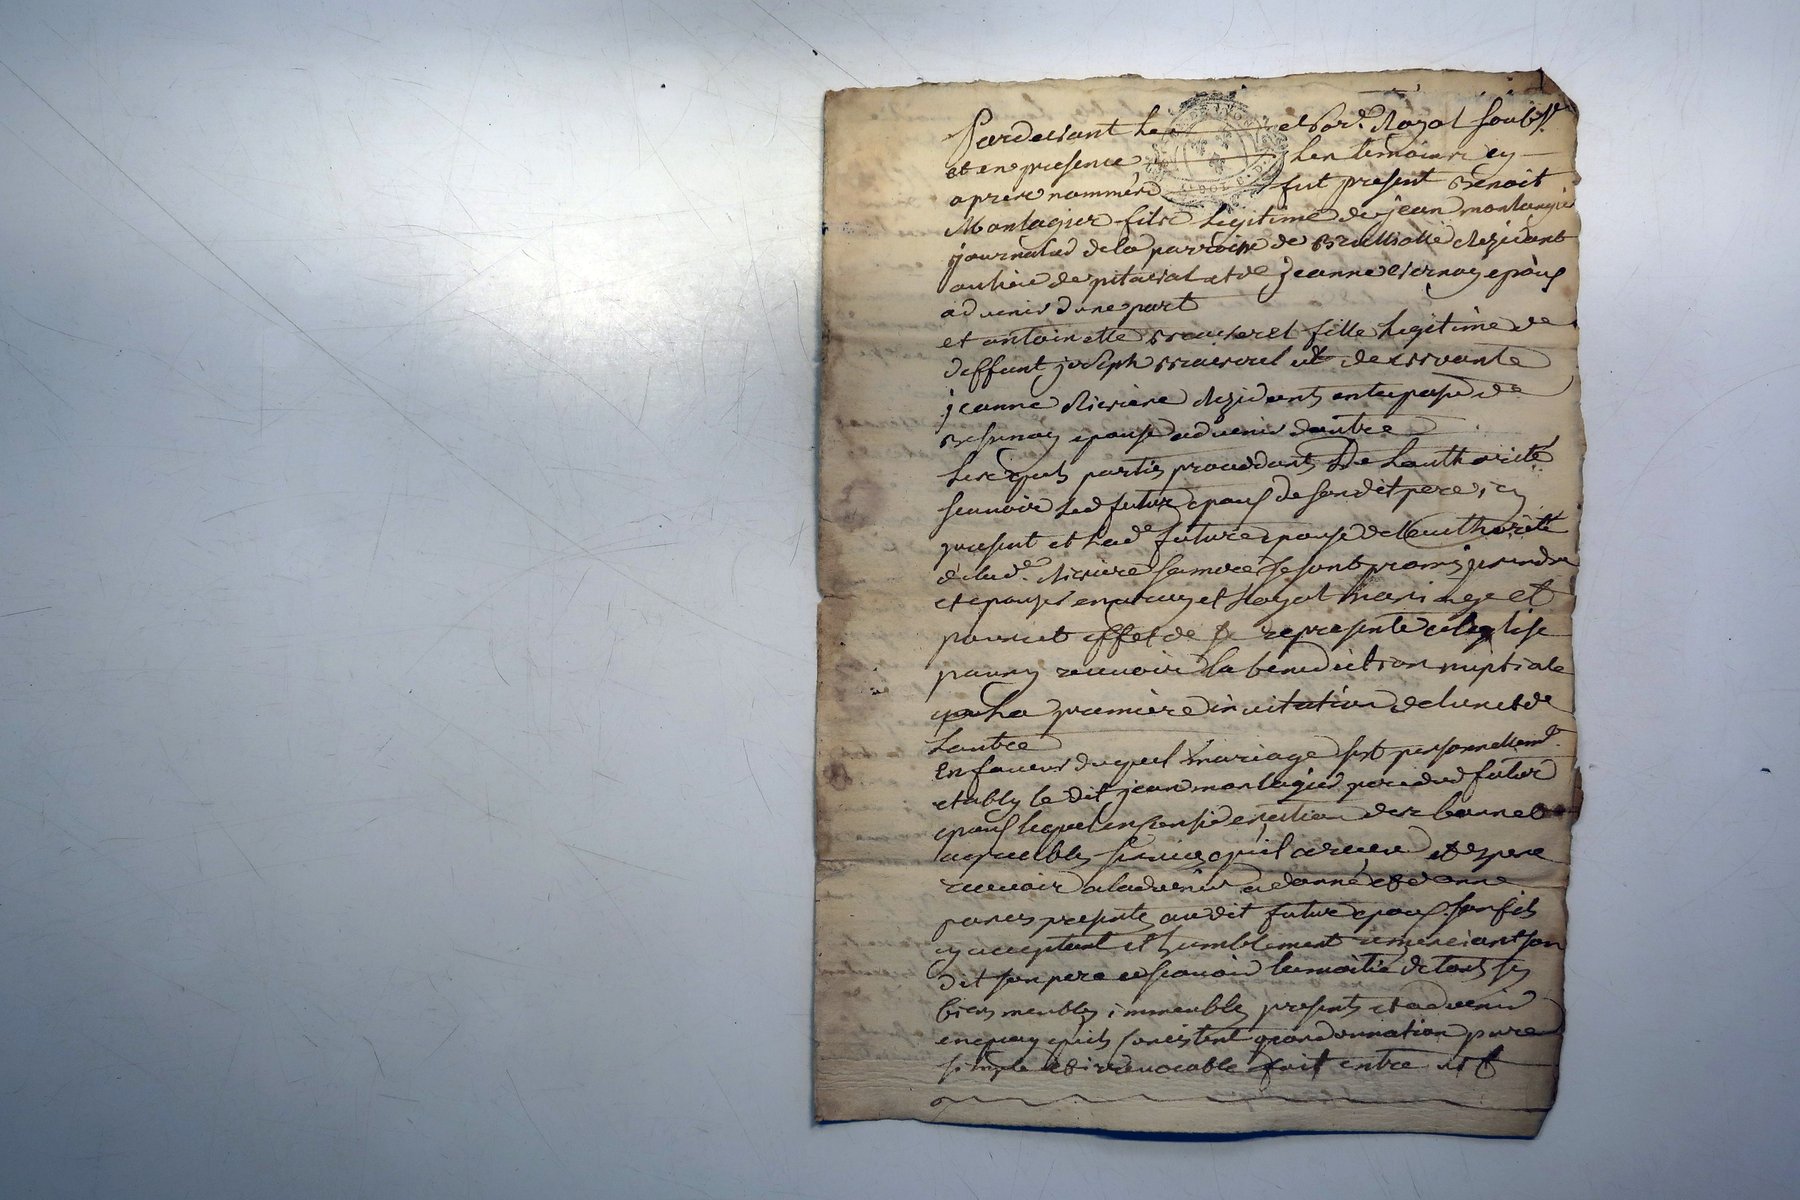 Pardevant le no.re Royal soub.né
et en presence des temoins cy
apres nommés fut present Benoit
Montagier fils legitime de jean montagier
journalier de la parroisse de resident
au lieu de et de jeanne epoux
advenir d'une part
et antoinette fille legitime de
deffunt joseph et de vivante
jeanne Riviere residants en la paroisse de
epouse advenir d'autre
Lesquels parties proceddants de Lauthorité
scauoir Led futur epoux de son dit pere icy
present et Lad.e future epouse de Lauthorité
de lad.e Riviere sa mere se sont promis prendre
et epouser en vray et Loyal mariage et
pour cet effet de se represente a leglise
pour y receuoir La benediction nuptiale
a La premiere inuitation de lun et de
Lautre
En faueur duquel mariage sest personnellem.t
etably le dit jean montagier pere dud futur
epoux lequel en consideration des bonnes
agreables seruices quil a receu et espere
receuoir a ladvenir a donné et donne
par ces presentes au dit futur epoux son fils
icy acceptant et humblement remerciant son
dit son pere scauoir la moitie de tous ses
biens meubles immeubles presents et advenir
en quoy quils consistent par donnation pure
simple et irreuocable fait entre vif